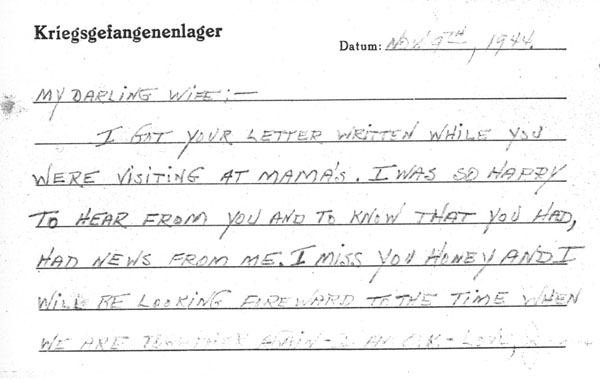 Kriegsgefangenenlager
Datum: NOV 9TH, 1944.
MY DARLING WIFE:—
I GOT YOUR LETTER WRITTEN WHILE YOU
WERE VISITING AT MAMA'S. I WAS SO HAPPY
TO HEAR FROM YOU AND TO KNOW THAT YOU HAD,
HAD NEWS FROM ME. I MISS YOU HONEY AND I
WILL BE LOOKING FOREWARD TO THE TIME WHEN
WE ARE TOGETHER AGAIN - I AM O.K. - LOVE,